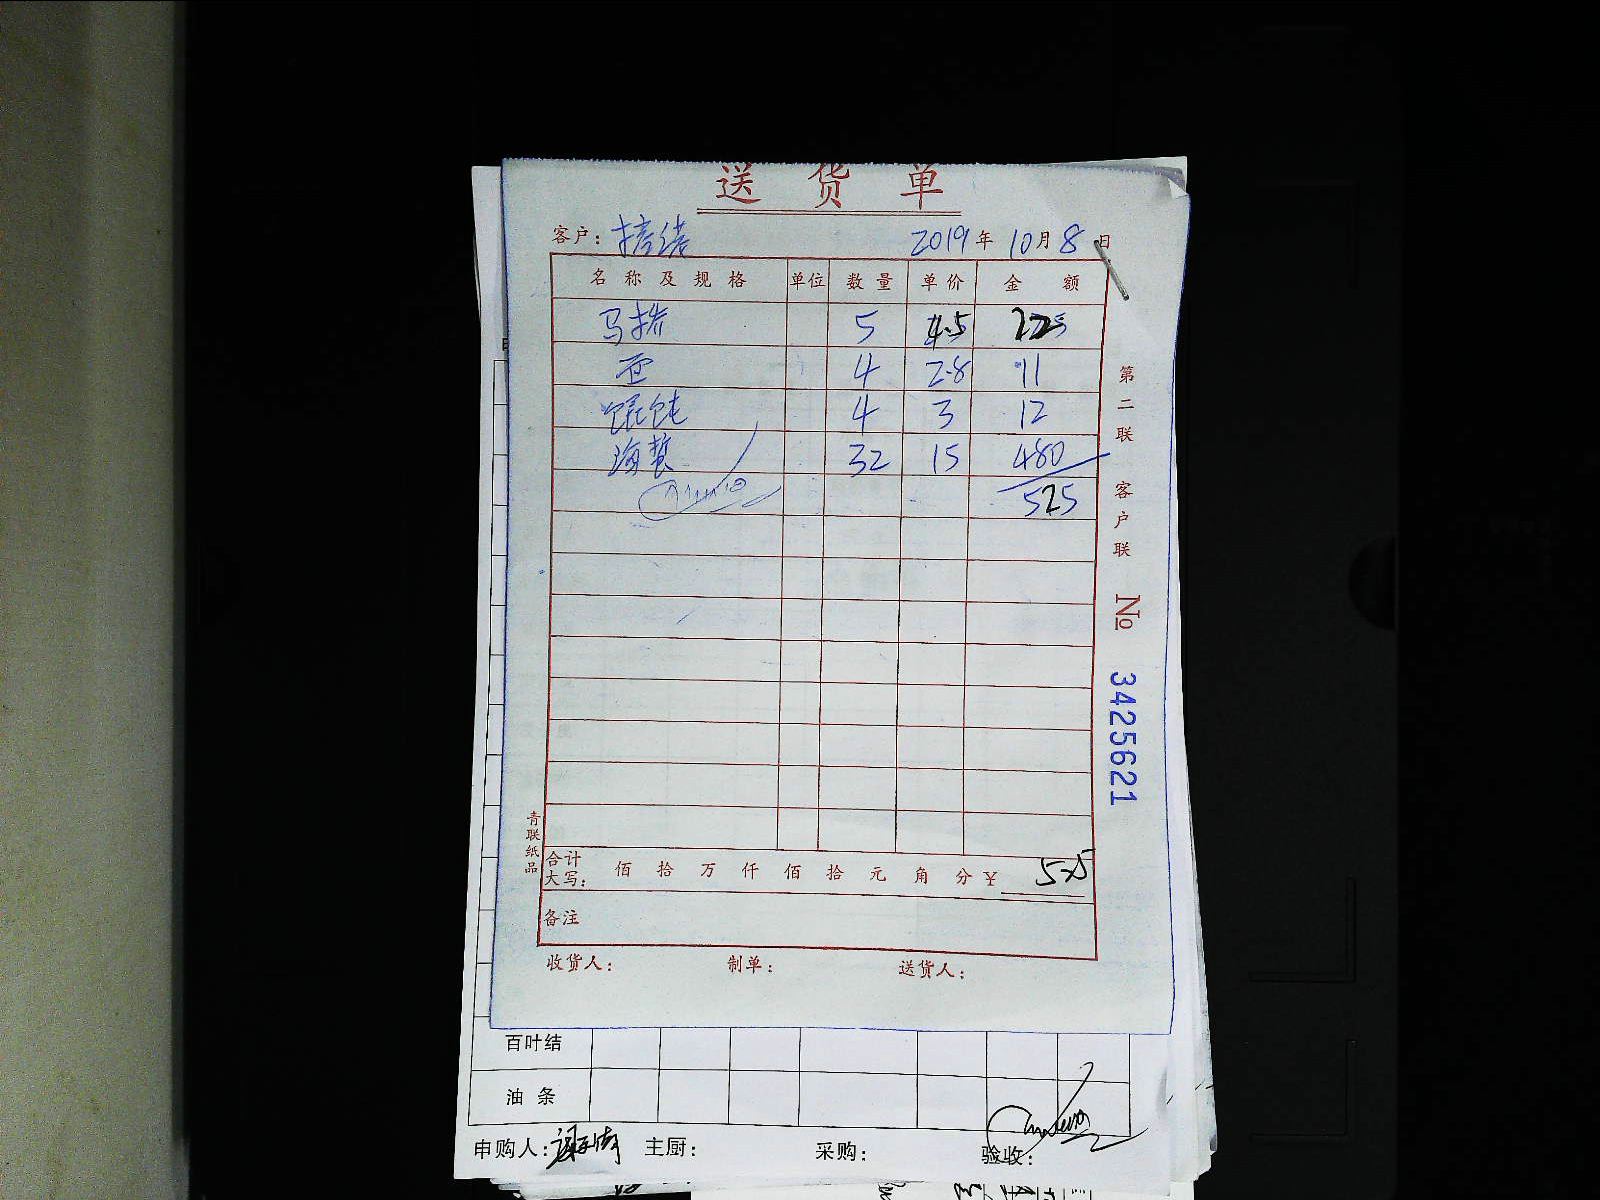 送货单
客户: 2019年10月8日
名称及规格 单位 数量 单价 金额
5 4.5 225
4 2.8 11
馄饨 4 3 12
海蜇 32 15 480
525
第二联 客户联 № 3425621
青联纸品
合计大写: 佰 拾 万 仟 佰 拾 元 角 分 ¥ 525
备注
收货人: 制单: 送货人:
百叶结
油条
申购人: 主厨: 采购: 验收: